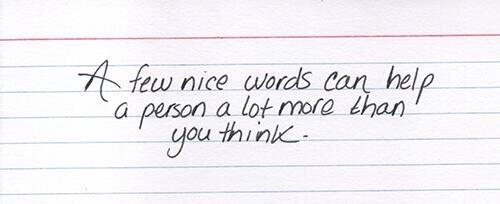 A few nice words can help
a person a lot more than
you think.